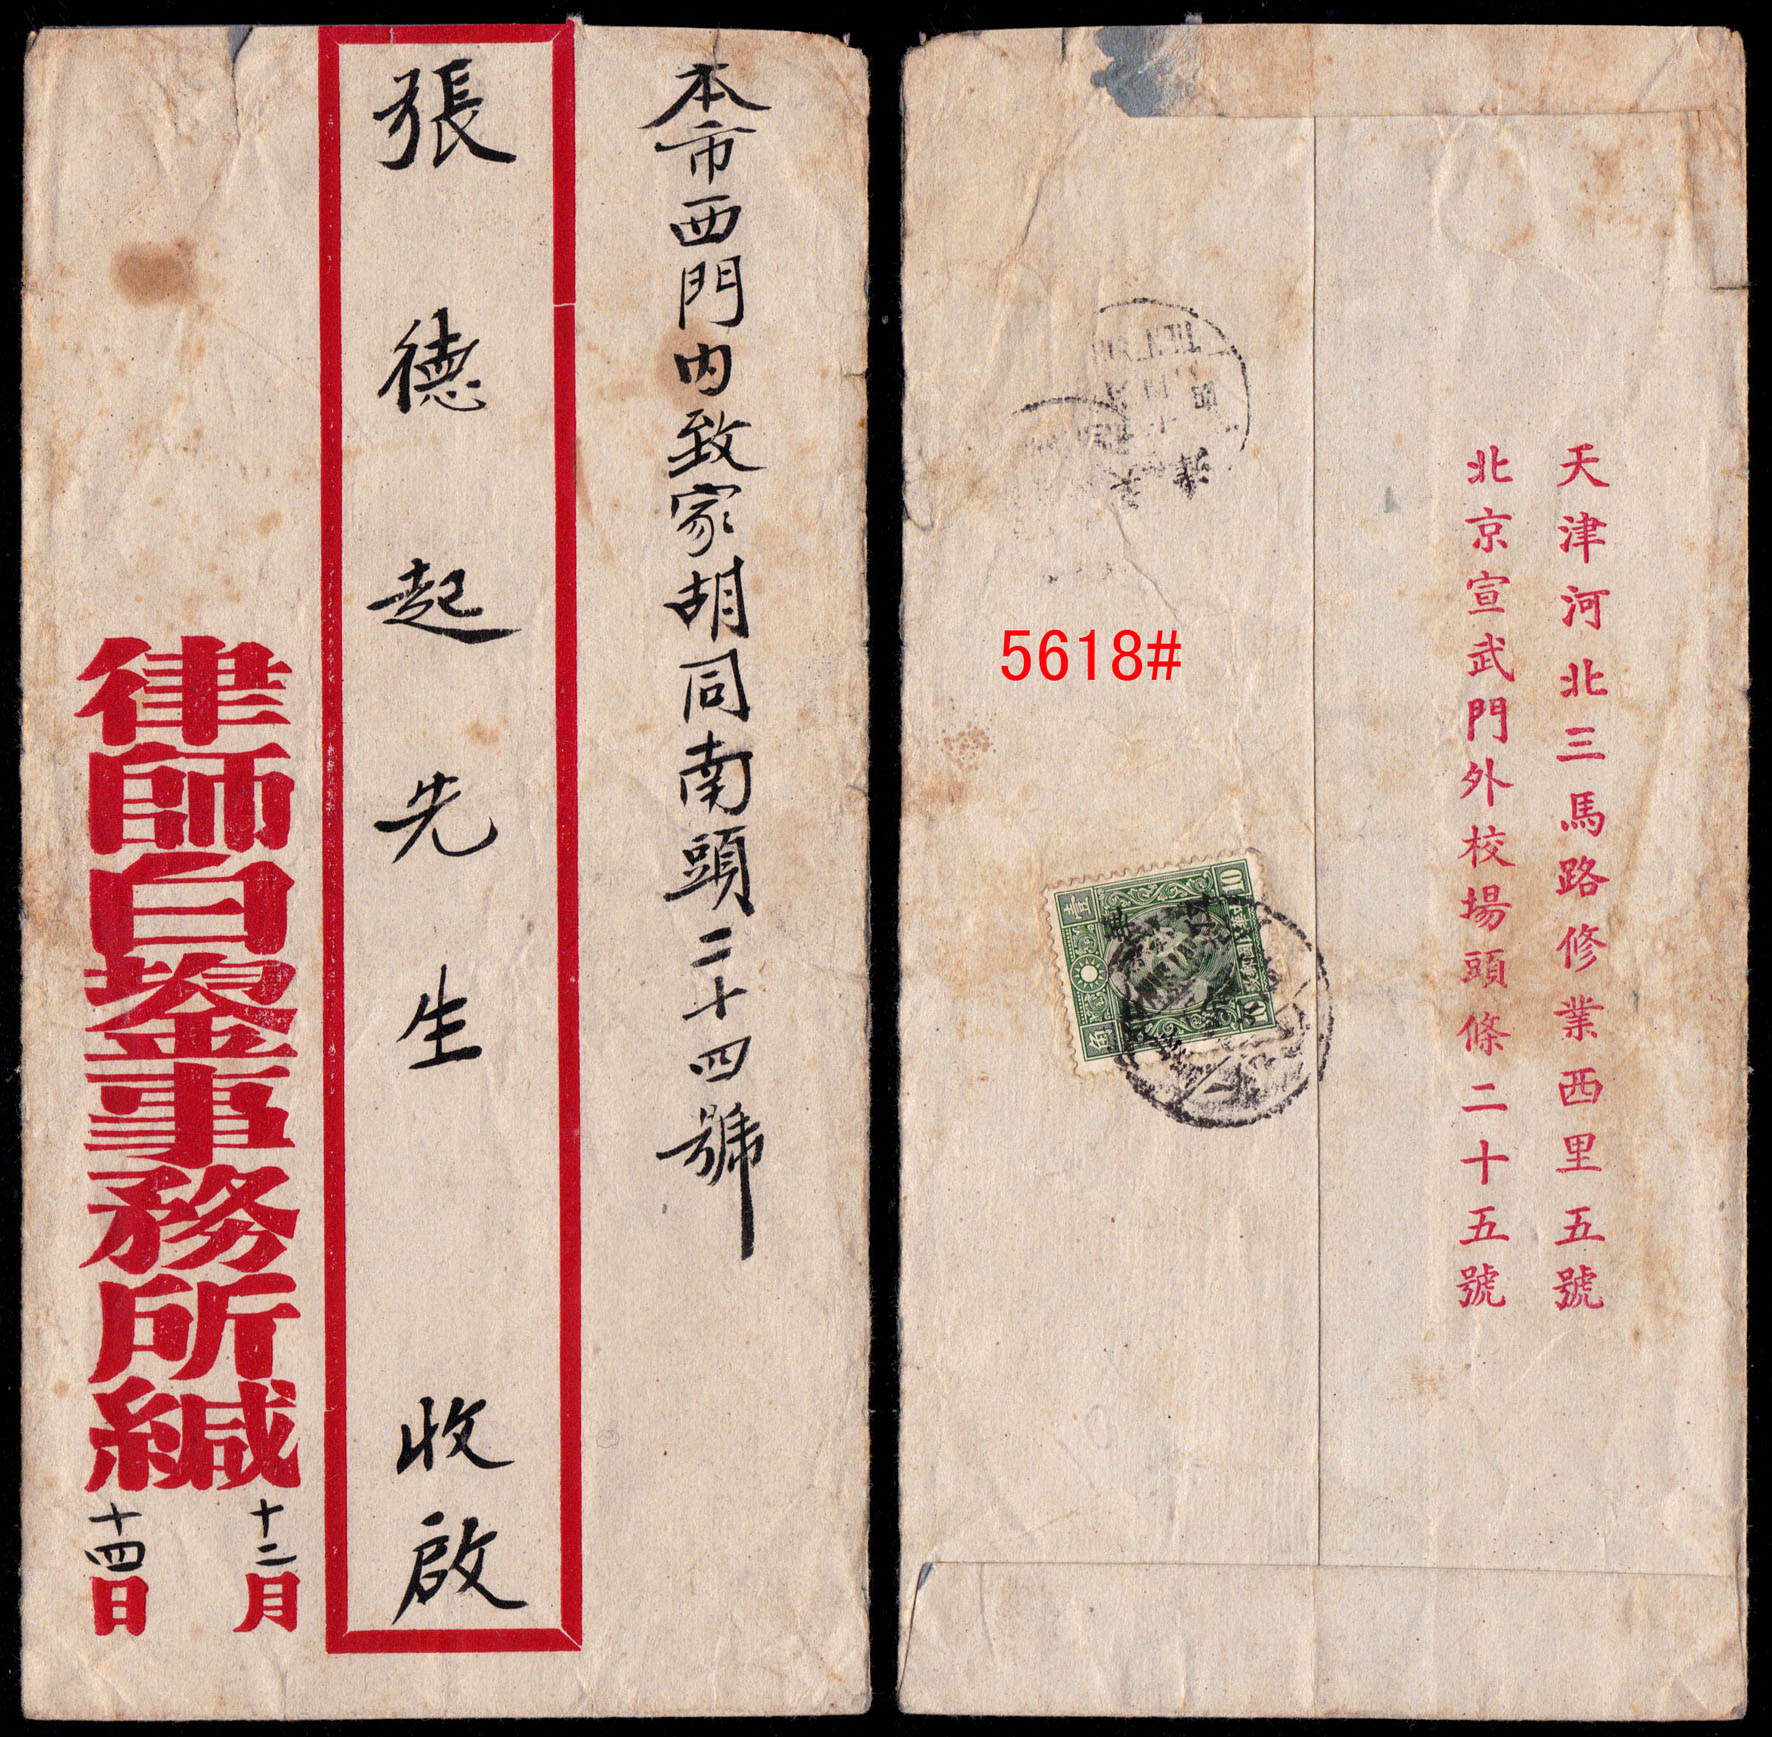 本市西門内致家胡同南頭二十四號
張德起先生 收啟
律師白鋆事務所緘
十二月
十四日
天津河北三馬路修業西里五號
北京宣武門外校場頭條二十五號
5618#
10
壹
角
天津